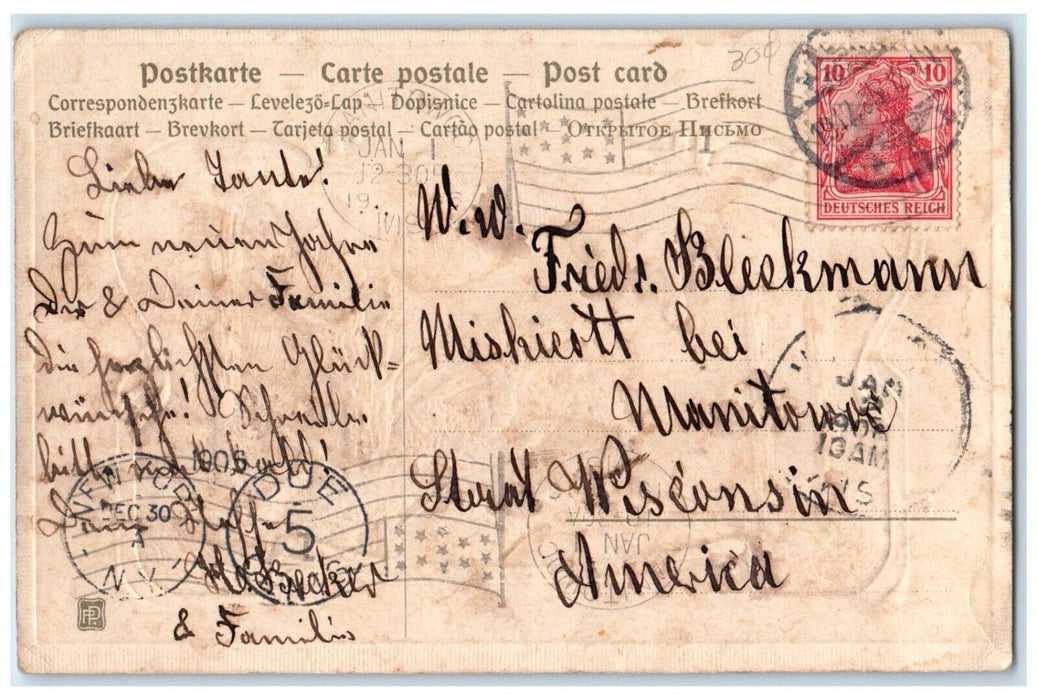 Postkarte — Carte postale — Post card
Correspondenzkarte — Levelező-Lap — Dopisnice — Cartolina postale — Brefkort
Briefkaart — Brevkort — Tarjeta postal — Cartão postal — Открытое Письмо
30¢
10 10
DEUTSCHES REICH
JAN 1
12 30
19
WIS
1
Liebe Tante!
Zum neuen Jahre
Dir & Deiner Familie
die herzlichsten Glück-
wünsche! Schreibe
bitte
1905
H. Becker
& Familie
W. w.
Friedr. Bleckmann
Mishicott bei
Manitowoc
Staat Wisconsin
America
NEW YORK
DEC 30
A
N.Y.
DUE
5
JAN
10 AM
WIS
JAN
PP